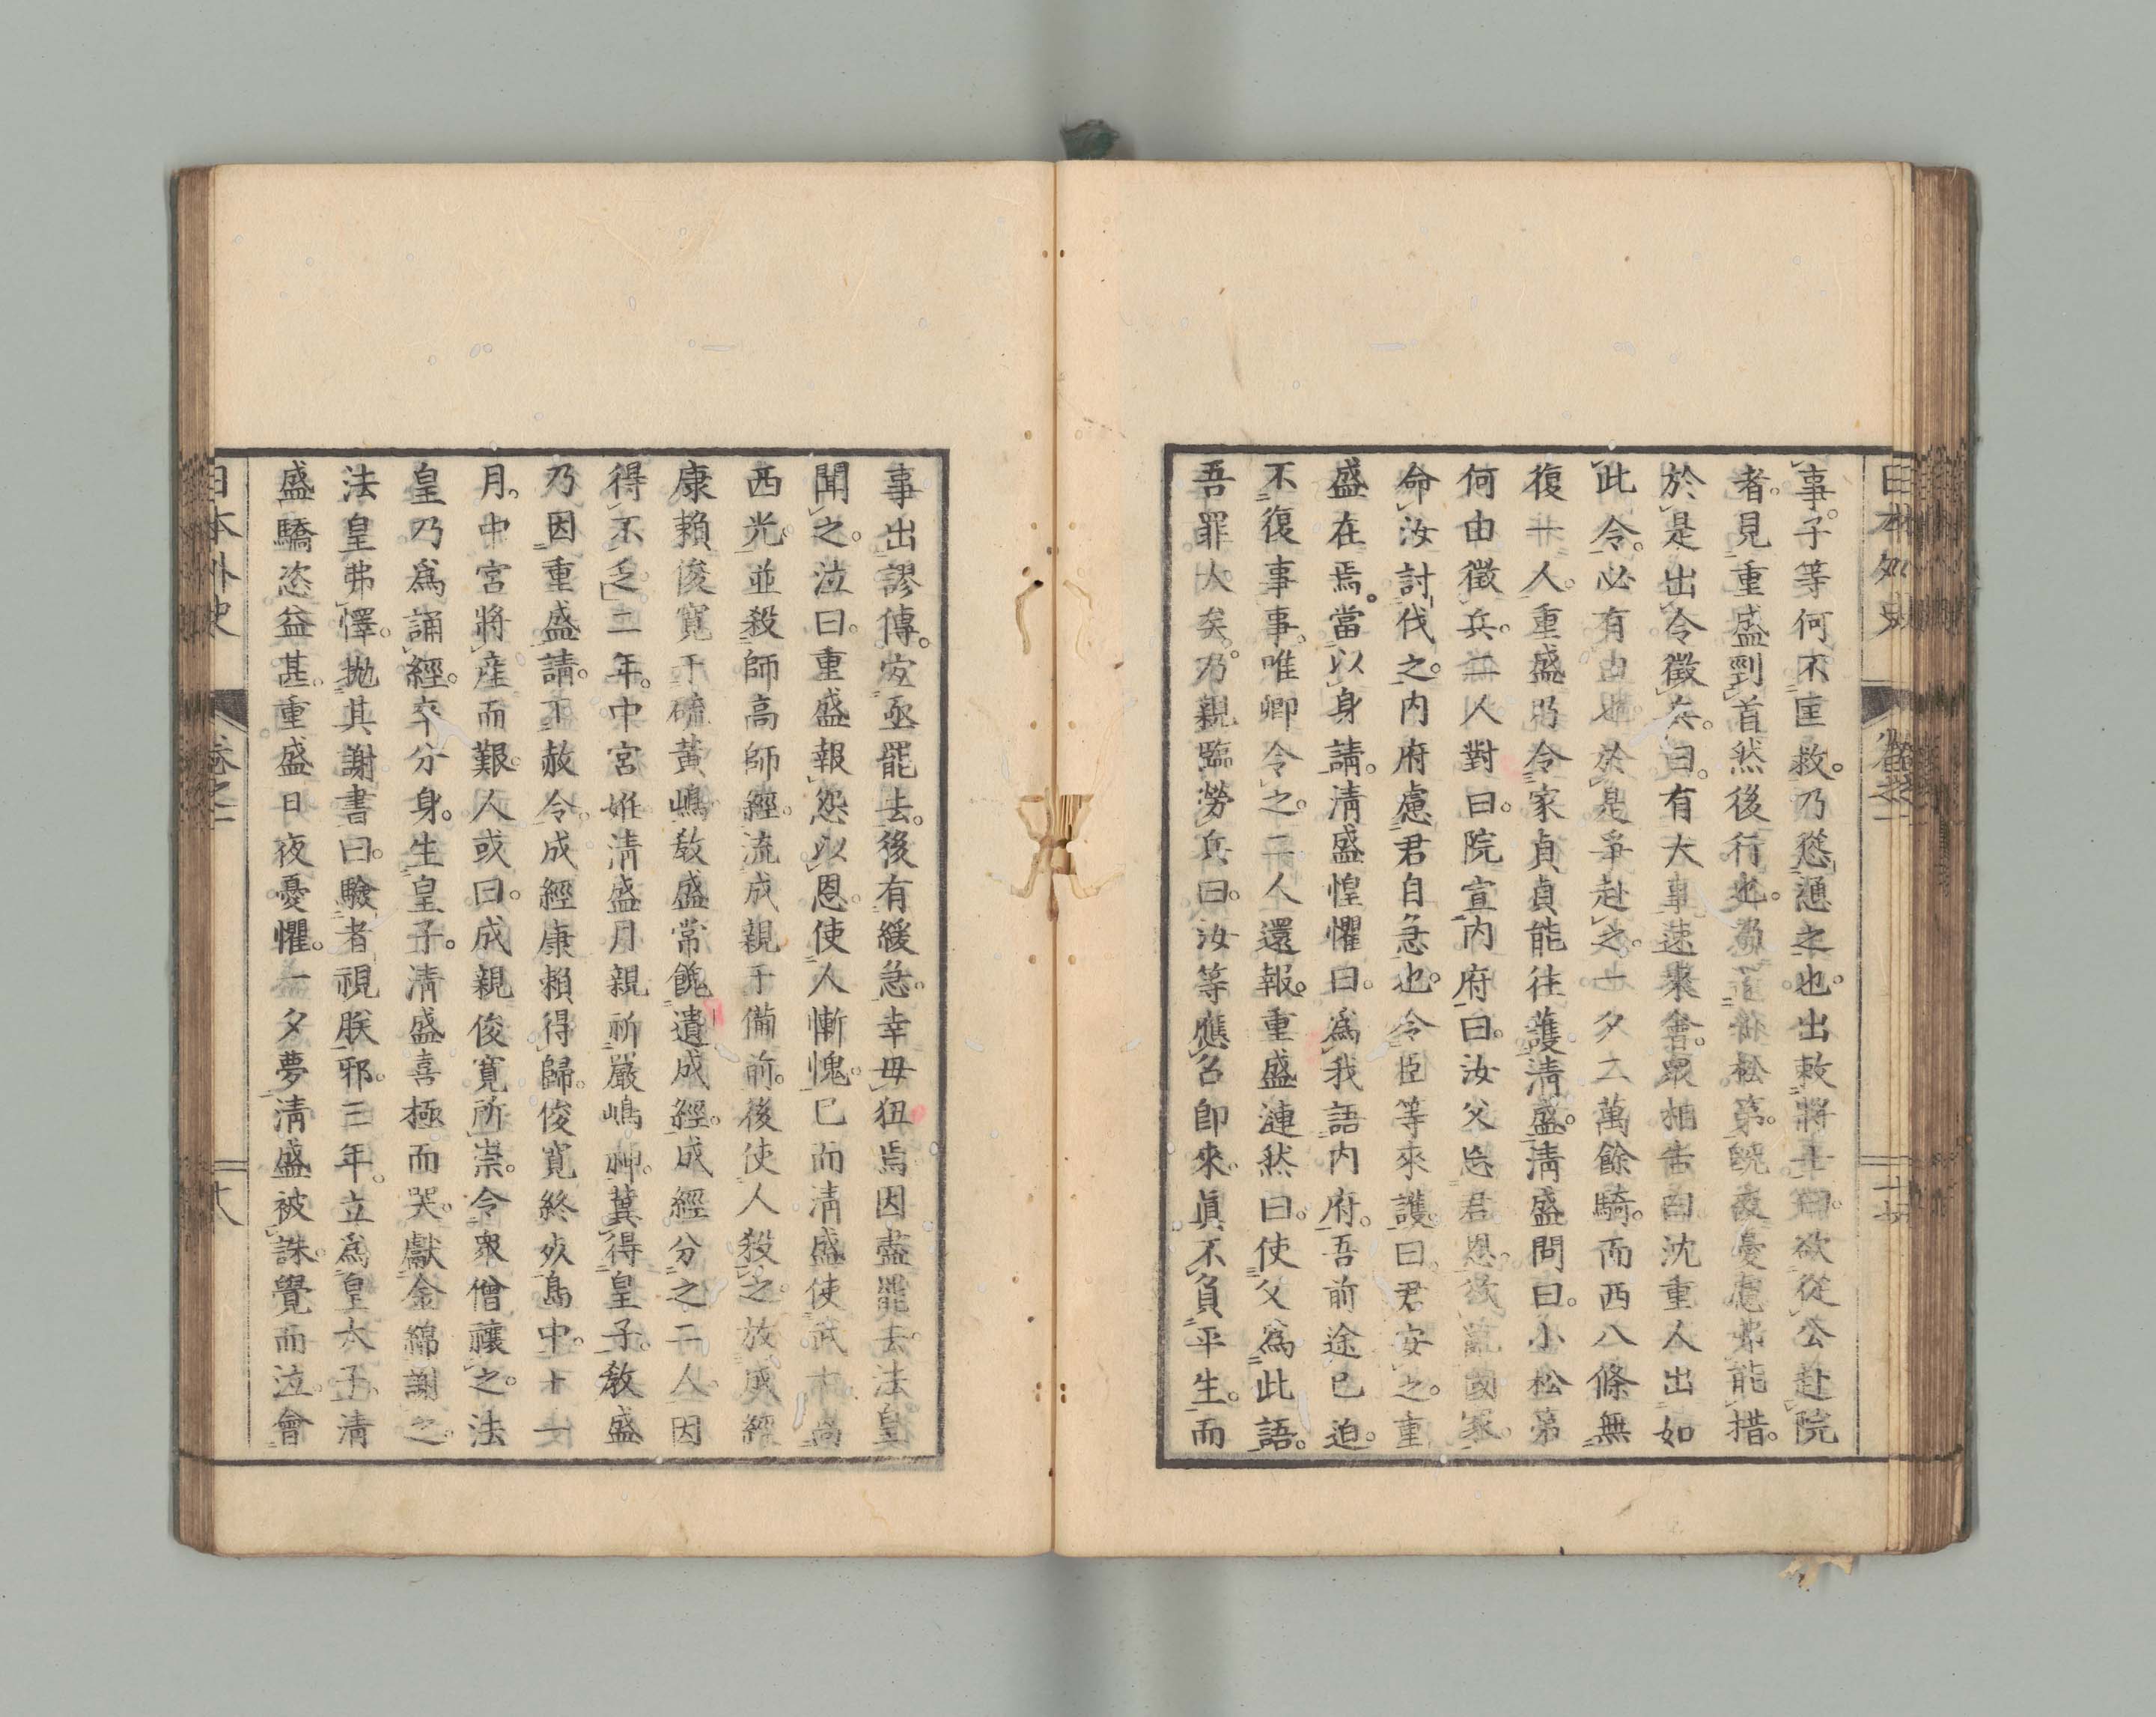 日本外史
卷之一
十七
事。子等何不匡救。乃慫慂之也。出敕將士曰。欲從公赴院
者。見重盛刎首然後行也。乃還小松第。競夜憂慮弗能措。
於是出令徵兵。曰。有大事速來會。眾相告曰。沈重人出如
此令。必有由也。於是爭赴之。一夕二萬餘騎。而西八條無
復一人。重盛乃令家貞貞能往護淸盛。淸盛問曰。小松第
何由徵兵。二人對曰。院宣內府曰。汝父忘君恩。欲亂國家。
命汝討伐之。內府慮君自急也。令臣等來護。曰。君安之。重
盛在焉。當以身請。淸盛惶懼曰。爲我語內府。吾前途已迫。
不復事事。唯卿令之。二人還報。重盛漣然曰。使父爲此語。
吾罪大矣。乃親臨勞兵曰。汝等應召卽來。眞不負平生。而
事出謬傳。宜亟罷去。後有緩急。幸毋狃焉。因盡罷去。法皇
聞之。泣曰。重盛報怨以恩。使人慚愧。已而淸盛使武士尚
西光。並殺師高師經。流成親于備前。後使人殺之。放成經
康賴俊寬于硫黃嶋。敎盛常餽遺成經。成經分之二人。因
得不乏。二年。中宮姙。淸盛月親祈嚴嶋神。冀得皇子。敎盛
乃因重盛請。下赦令。成經康賴得歸。俊寬終歿島中。十一
月。中宮將產而艱。人或曰。成親俊寬所祟。令眾僧禳之。法
皇乃爲誦經。卒分身。生皇子。淸盛喜極而哭。獻金綿謝之。
法皇弗懌。抛其謝書曰。驗者視朕邪。三年。立爲皇太子。淸
盛驕恣益甚。重盛日夜憂懼。一夕夢淸盛被誅。覺而泣。會
日本外史
卷之一
十八